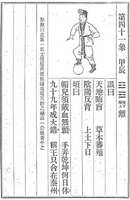 第四十一象 甲辰 離
讖曰
天地晦盲 草木蕃殖
陰陽反背 上土下日
頌曰
帽兒須戴血無頭 手弄乾坤何日休
九十九年成大錯 稱王只合在秦州